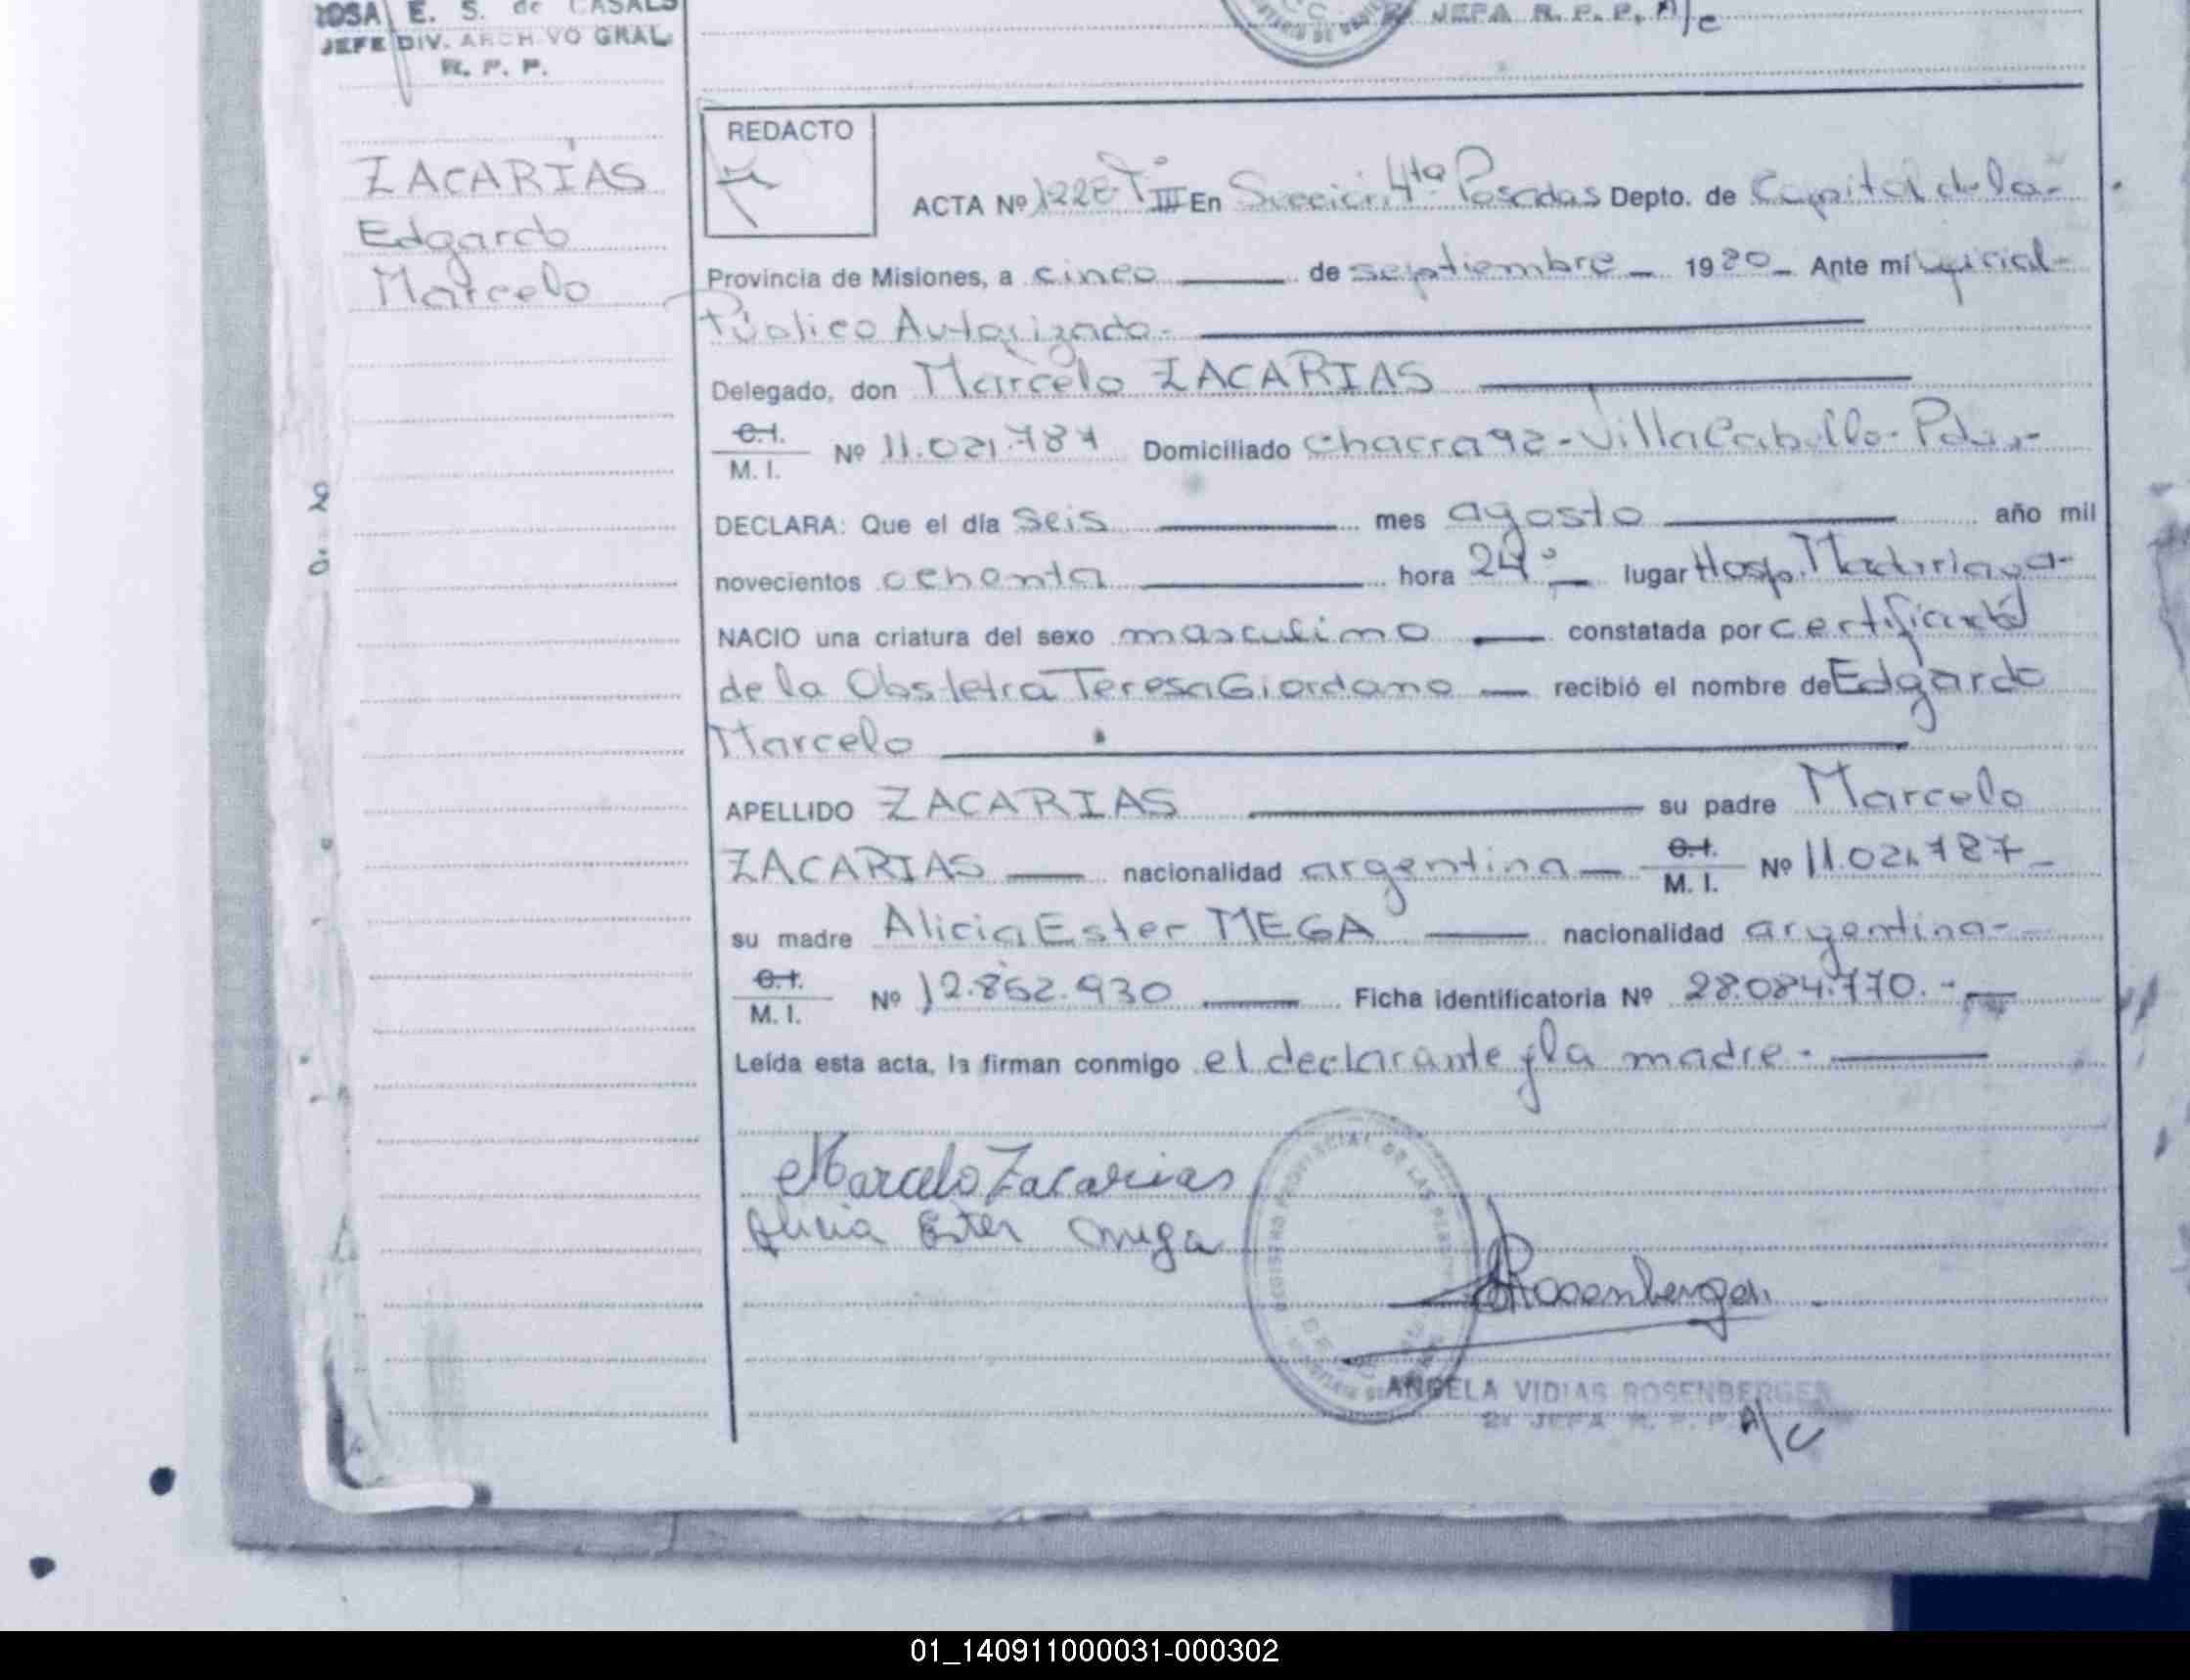 ROSA E. S. de CASALS
JEFE DIV. ARCHIVO GRAL.
R. P. P.
JEFA R. P. P. A/c
ZACARÍAS
Edgardo
Marcelo
REDACTO
ACTA Nº 1228 T° III En Sección 4ta Posadas Depto. de Capital de la-
Provincia de Misiones, a cinco de septiembre 1980 Ante mí Oficial-
Público Autorizado-
Delegado, don Marcelo ZACARIAS
C.I.
M. I. Nº 11.021.787 Domiciliado chacra 92-Villa Cabello-Pdas-
DECLARA: Que el día seis mes agosto año mil
novecientos ochenta hora 24° lugar Hosp. Madariaga-
NACIO una criatura del sexo masculino constatada por certificado
de la Obstetra Teresa Giordano recibió el nombre de Edgardo
Marcelo
APELLIDO ZACARIAS su padre Marcelo
ZACARIAS nacionalidad argentina C.I. M. I. Nº 11.021.787-
su madre Alicia Ester MEGA nacionalidad argentina-
C.I.
M. I. Nº 12.852.930 Ficha identificatoria Nº 28.084.770.-
Leída esta acta, la firman conmigo el declarante y la madre-
Marcelo Zacarias
Alicia Ester Mega
REGISTRO PROVINCIAL DE LAS
Rosenberger
ANGELA VIDIAS ROSENBERGER
JEFA R. P. P. A/C
01_140911000031-000302